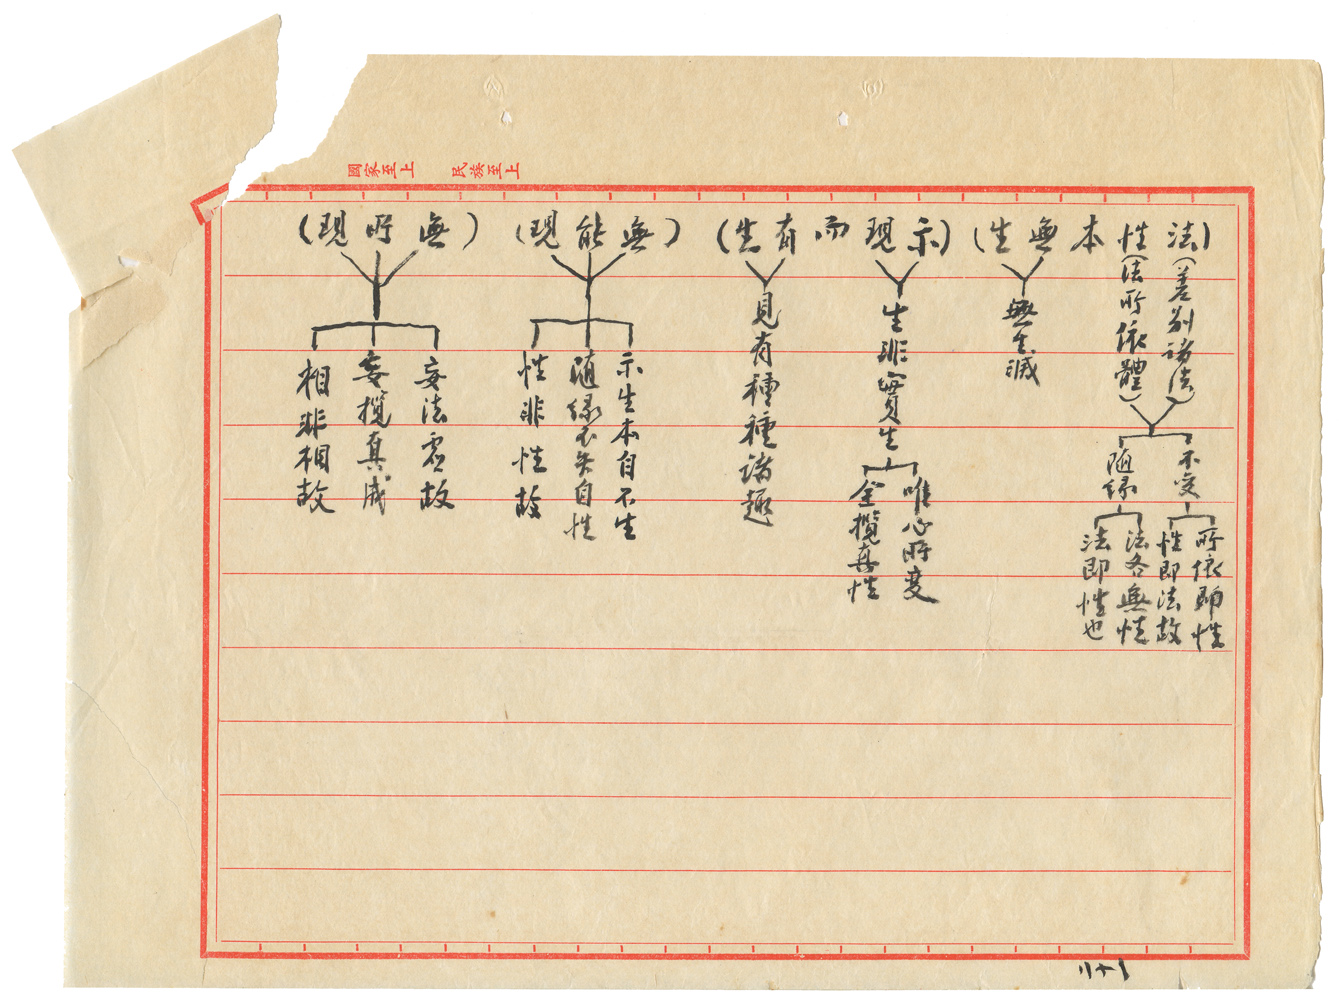 國家至上 民族至上
(法性本無生)
(差別諸法)
(法所依體)
不變
所依即性
性即法故
隨緣
法各無性
法即性也
無生滅
(示現而有生)
生非實生
唯心所變
全攬真性
見有種種諸趣
(無能現)
示生本自不生
隨緣不失自性
性非性故
(無所現)
妄法虛故
妄攬真成
相非相故